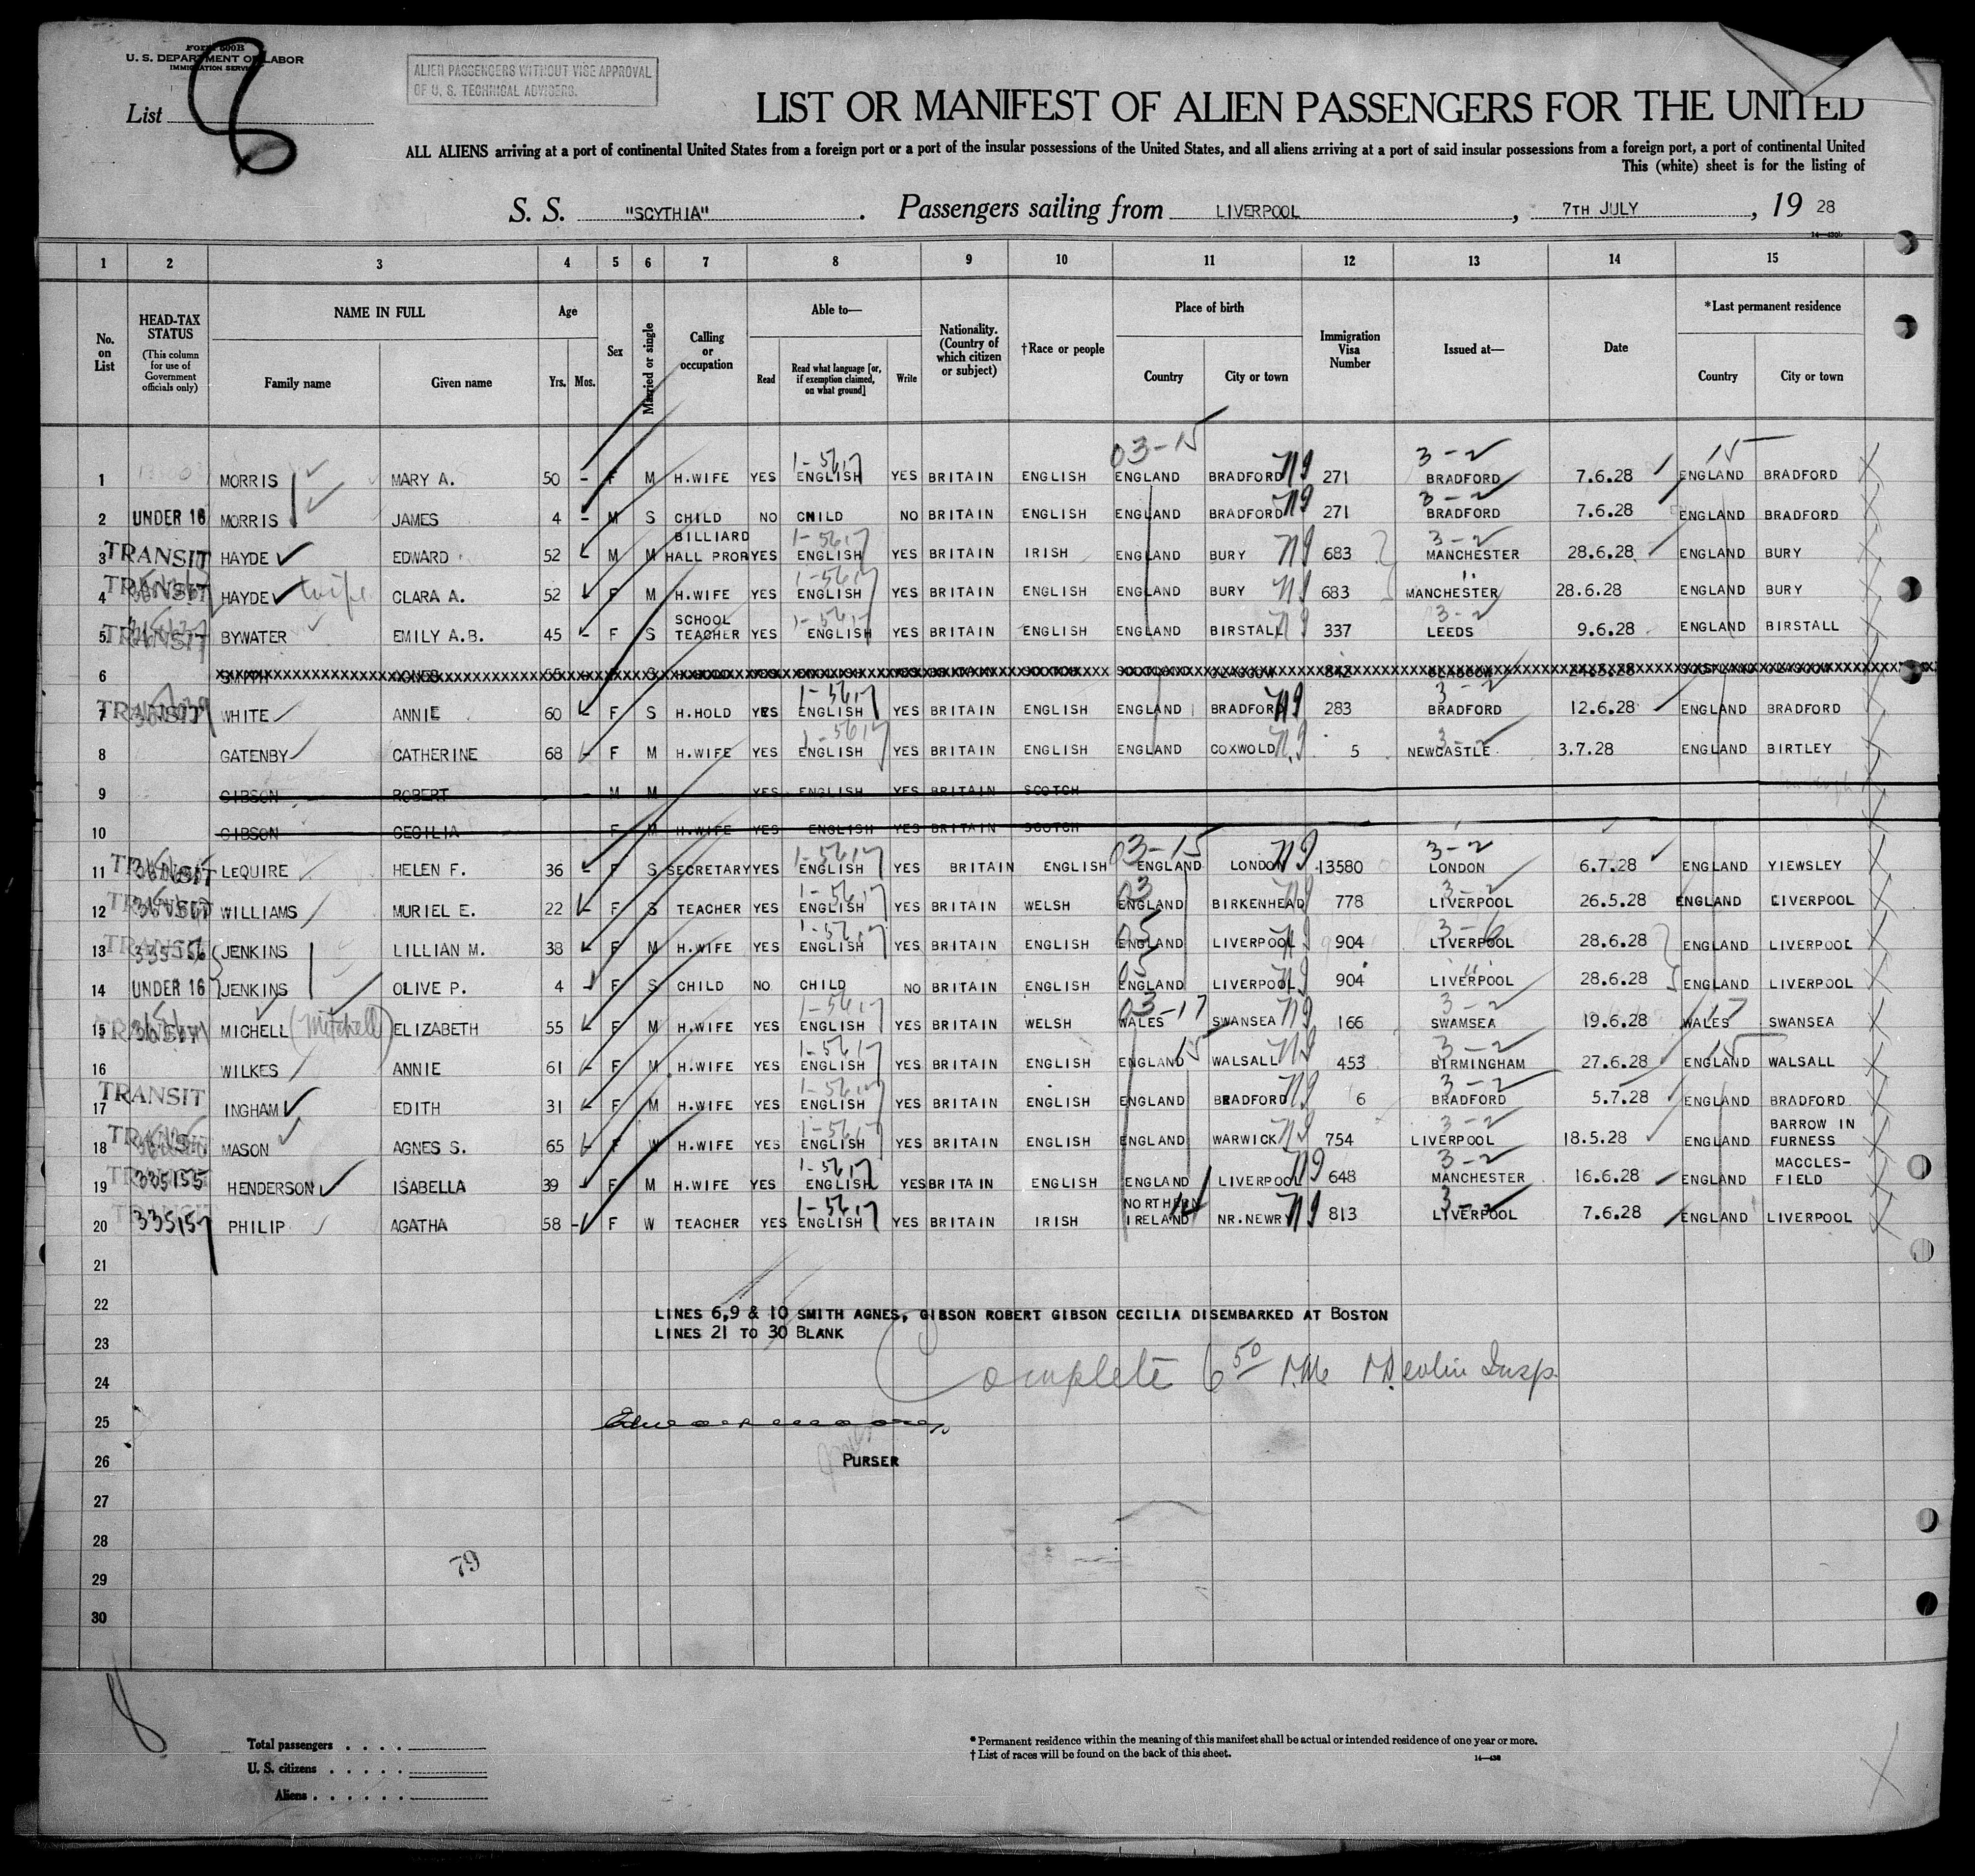 Form 500B
U. S. DEPARTMENT OF LABOR
IMMIGRATION SERVICE
ALIEN PASSENGERS WITHOUT VISE APPROVAL
OF U. S. TECHNICAL ADVISERS.
List 8
LIST OR MANIFEST OF ALIEN PASSENGERS FOR THE UNITED
ALL ALIENS arriving at a port of continental United States from a foreign port or a port of the insular possessions of the United States, and all aliens arriving at a port of said insular possessions from a foreign port, a port of continental United
This (white) sheet is for the listing of
S. S. "SCYTHIA". Passengers sailing from LIVERPOOL, 7TH JULY, 19 28
1 2 3 4 5 6 7 8 9 10 11 12 13 14 15
No. on List
HEAD-TAX STATUS (This column for use of Government officials only)
NAME IN FULL
Family name Given name
Age
Yrs. Mos.
Sex
Married or single
Calling or occupation
Able to—
Read Read what language [or, if exemption claimed, on what ground] Write
Nationality. (Country of which citizen or subject)
†Race or people
Place of birth
Country City or town
Immigration Visa Number
Issued at—
Date
*Last permanent residence
Country City or town
1 MORRIS MARY A. 50 - F M H.WIFE YES ENGLISH YES BRITAIN ENGLISH ENGLAND BRADFORD 271 BRADFORD 7.6.28 ENGLAND BRADFORD
2 UNDER 16 MORRIS JAMES 4 - M S CHILD NO CHILD NO BRITAIN ENGLISH ENGLAND BRADFORD 271 BRADFORD 7.6.28 ENGLAND BRADFORD
3 TRANSIT HAYDE EDWARD 52 - M M BILLIARD HALL PROP YES ENGLISH YES BRITAIN IRISH ENGLAND BURY 683 MANCHESTER 28.6.28 ENGLAND BURY
4 TRANSIT HAYDE wife CLARA A. 52 F M H.WIFE YES ENGLISH YES BRITAIN ENGLISH ENGLAND BURY 683 MANCHESTER 28.6.28 ENGLAND BURY
5 TRANSIT BYWATER EMILY A.B. 45 - F S SCHOOL TEACHER YES ENGLISH YES BRITAIN ENGLISH ENGLAND BIRSTALL 337 LEEDS 9.6.28 ENGLAND BIRSTALL
6 SMITH AGNES 65 F S H.HOLD YES ENGLISH YES BRITAIN SCOTCH SCOTLAND GLASGOW 842 GLASGOW SCOTLAND GLASGOW
7 TRANSIT WHITE ANNIE 60 - F S H.HOLD YES ENGLISH YES BRITAIN ENGLISH ENGLAND BRADFORD 283 BRADFORD 12.6.28 ENGLAND BRADFORD
8 GATENBY CATHERINE 68 - F M H.WIFE YES ENGLISH YES BRITAIN ENGLISH ENGLAND COXWOLD 5 NEWCASTLE 3.7.28 ENGLAND BIRTLEY
9 GIBSON ROBERT M M YES ENGLISH YES BRITAIN SCOTCH
10 GIBSON CECILIA F M H.WIFE YES ENGLISH YES BRITAIN SCOTCH
11 TRANSIT LEQUIRE HELEN F. 36 - F S SECRETARY YES ENGLISH YES BRITAIN ENGLISH ENGLAND LONDON 13580 LONDON 6.7.28 ENGLAND YIEWSLEY
12 TRANSIT WILLIAMS MURIEL E. 22 - F S TEACHER YES ENGLISH YES BRITAIN WELSH ENGLAND BIRKENHEAD 778 LIVERPOOL 26.5.28 ENGLAND LIVERPOOL
13 TRANSIT JENKINS LILLIAN M. 38 - F M H.WIFE YES ENGLISH YES BRITAIN ENGLISH ENGLAND LIVERPOOL 904 LIVERPOOL 28.6.28 ENGLAND LIVERPOOL
14 UNDER 16 JENKINS OLIVE P. 4 - F S CHILD NO CHILD NO BRITAIN ENGLISH ENGLAND LIVERPOOL 904 LIVERPOOL 28.6.28 ENGLAND LIVERPOOL
15 TRANSIT MICHELL (Mitchell) ELIZABETH 55 - F M H.WIFE YES ENGLISH YES BRITAIN WELSH WALES SWANSEA 166 SWAMSEA 19.6.28 WALES SWANSEA
16 WILKES ANNIE 61 - F M H.WIFE YES ENGLISH YES BRITAIN ENGLISH ENGLAND WALSALL 453 BIRMINGHAM 27.6.28 ENGLAND WALSALL
17 TRANSIT INGHAM EDITH 31 - F M H.WIFE YES ENGLISH YES BRITAIN ENGLISH ENGLAND BRADFORD 6 BRADFORD 5.7.28 ENGLAND BRADFORD
18 TRANSIT MASON AGNES S. 65 - F W H.WIFE YES ENGLISH YES BRITAIN ENGLISH ENGLAND WARWICK 754 LIVERPOOL 18.5.28 ENGLAND BARROW IN FURNESS
19 TRANSIT 335155 HENDERSON ISABELLA 39 - F M H.WIFE YES ENGLISH YES BRITAIN ENGLISH ENGLAND LIVERPOOL 648 MANCHESTER 16.6.28 ENGLAND MACCLES-FIELD
20 TRANSIT 335157 PHILIP AGATHA 58 - F W TEACHER YES ENGLISH YES BRITAIN IRISH NORTHERN IRELAND NR.NEWRY 813 LIVERPOOL 7.6.28 ENGLAND LIVERPOOL
21
22
LINES 6,9 & 10 SMITH AGNES, GIBSON ROBERT GIBSON CECILIA DISEMBARKED AT BOSTON
LINES 21 TO 30 BLANK
23
24 Complete 6 50 P.M. Devlin Insp.
25
26 PURSER
27
28
29 79
30
Total passengers . . . .
U. S. citizens . . . . .
Aliens . . . . . .
* Permanent residence within the meaning of this manifest shall be actual or intended residence of one year or more.
† List of races will be found on the back of this sheet.